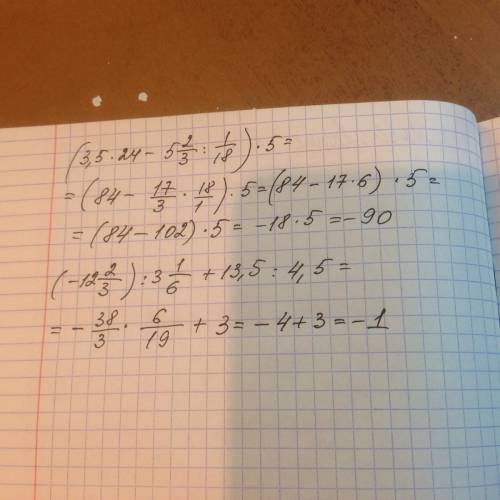 (3,5·24 − 5 2/3 : 1/18)·5=
=(84− 17/3 · 18/1)·5=(84−17·6)·5=
=(84−102)·5= −18·5=−90
(−12 2/3):3 1/6 +13,5:4,5=
=− 38/3 · 6/19 + 3=−4+3=−1